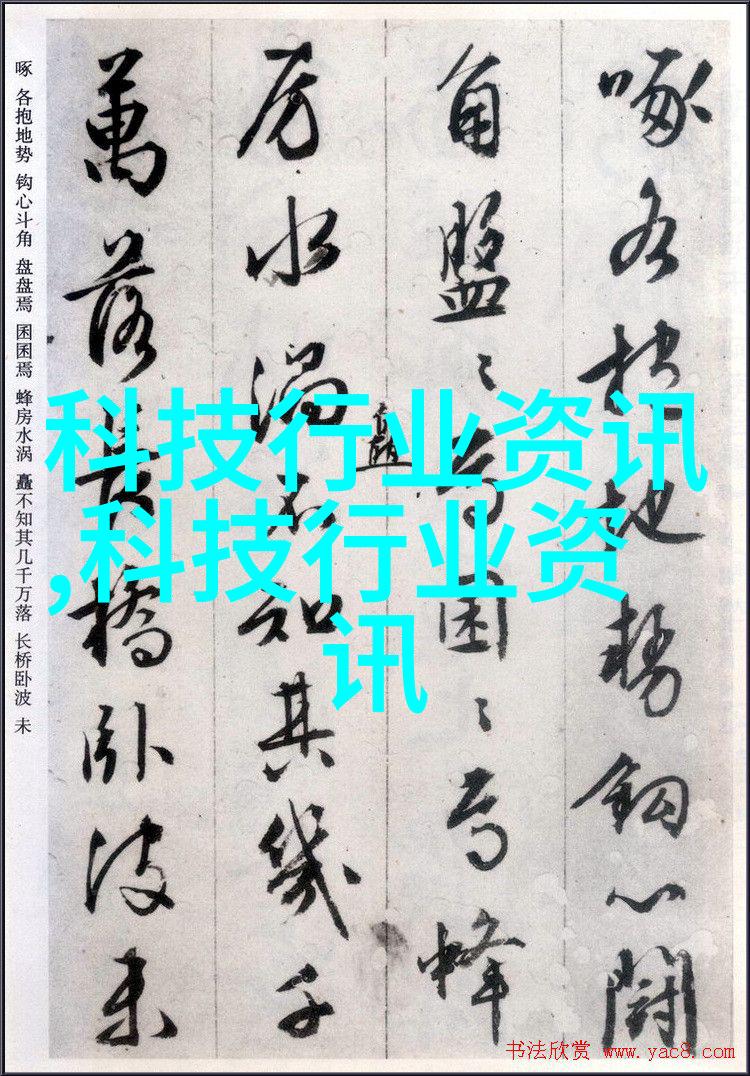 啄各抱地势钩心闘
角盤〻焉囷〻焉蜂
房水渦不知其幾千
萬落長橋卧波未
啄 各抱地势 钩心斗角 盘盘焉 囷囷焉 蜂房水涡 矗不知其几千万落 长桥卧波 未
科技行业资讯
,科技行业资
讯
书法欣赏 www.yac8.com